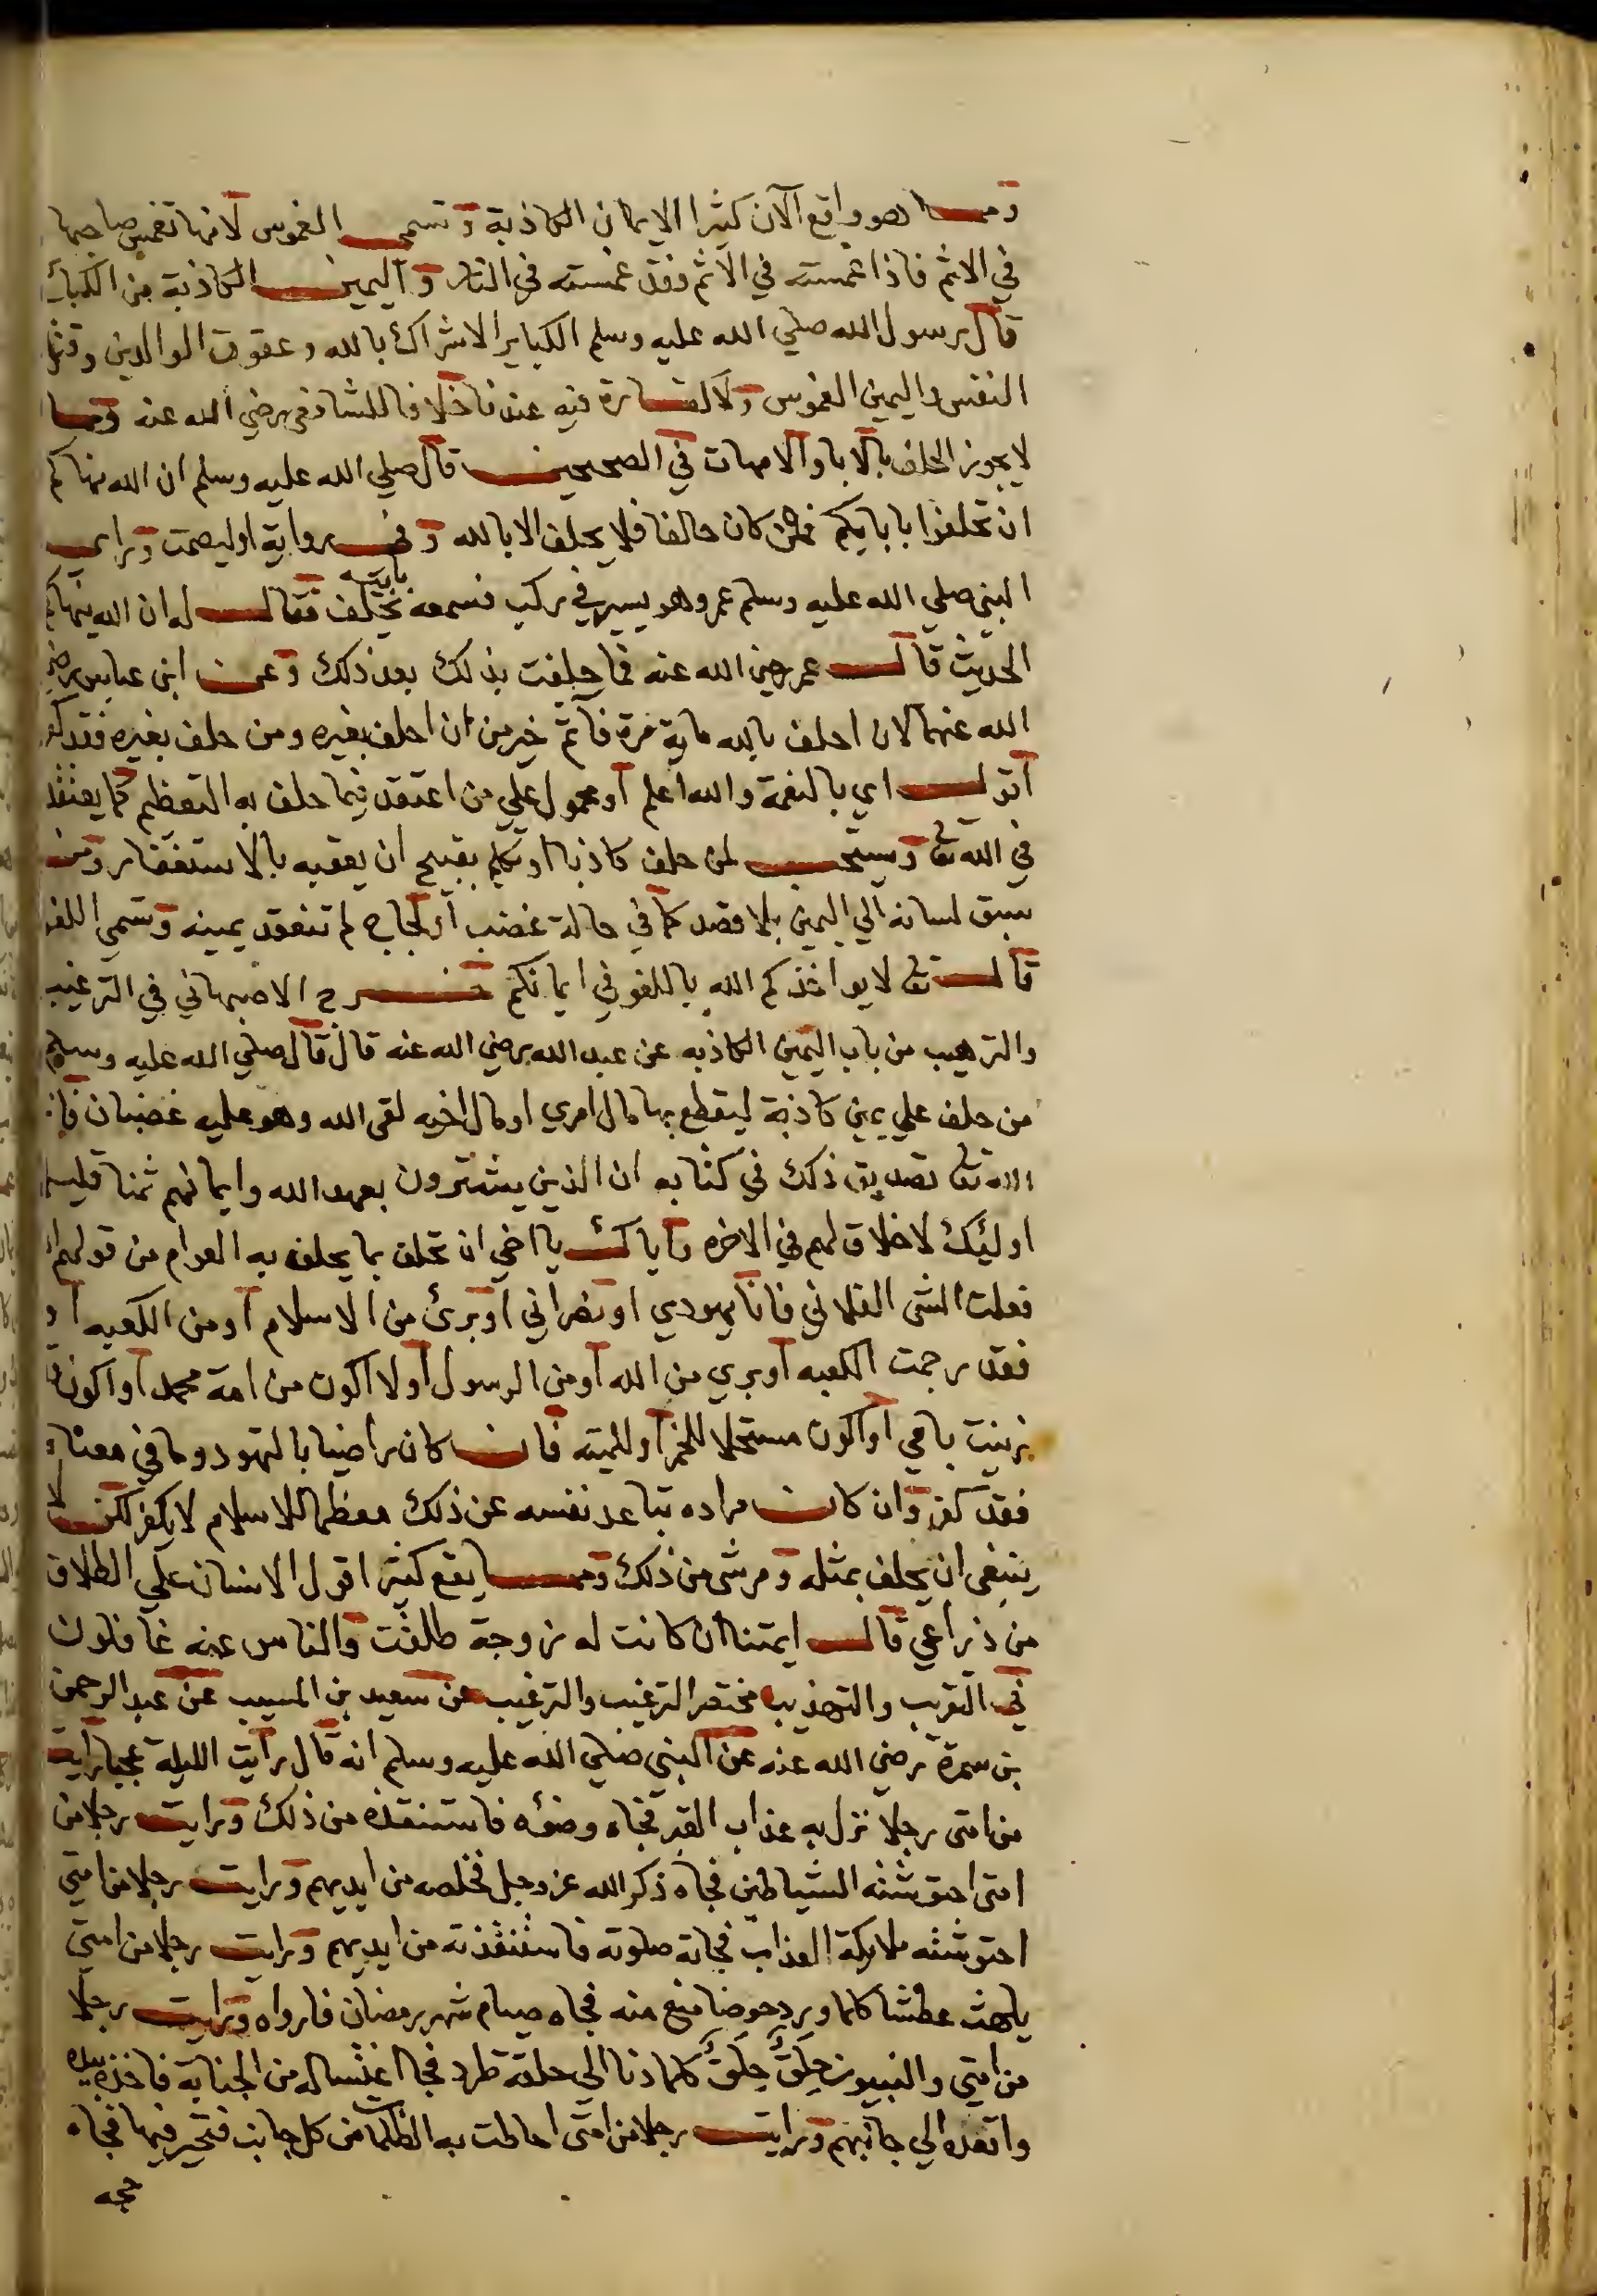 ومما هو واقع الآن كثيرا الايمان الكاذبة وتسمى الغموس لانها تغمس صاحبها
في الاثم فاذا غمسته في الاثم فقد غمسته في النار واليمين الكاذبة من الكبائر
قال رسول الله صلي الله عليه وسلم الكباير الاشراك بالله وعقوق الوالدين وقتل
النفس واليمين الغموس ولا كفارة فيه عندنا خلافا للشافعي رضي الله عنه ومما
لا يجوز الحلف بالابا والامهات في الصحيحين قال صلي الله عليه وسلم ان الله ينهاكم
ان تحلفوا بابايكم فمن كان حالفا فلا يحلف الا بالله وفي رواية او ليصمت وراى
النبي صلي الله عليه وسلم عمر وهو يسير في ركب فسمعه يحلف بابيه فقال له ان الله ينهاكم
الحديث قال عمر رضي الله عنه فما حلفت بذلك بعد ذلك وعن ابن عباس رضي
الله عنهما لان احلف بالله ماية مرة فآثم خير من ان احلف بغيره ومن حلف بغيره فقد كفر
اقول اي بالنعمة والله اعلم او محمول علي من اعتقد فيما حلف به التعظيم كما يعتقد
في الله تعا ويستحب لمن حلف كاذبا او تكلم بقبيح ان يعقبه بالاستغفار ومن
سبق لسانه الي اليمين بلا قصد كما في حالة غضب او لجاج لم تنعقد يمينه وتسمي اللغو
قال تعا لا يواخذكم الله باللغو في ايمانكم خرج الاصبهاني في الترغيب
والترهيب من باب اليمين الكاذبه عن عبد الله رضي الله عنه قال قال صلي الله عليه وسلم
من حلف علي يمين كاذبة ليقطع بها مال امري او مال اخيه لقي الله وهو عليه غضبان فانزل
الله تعا تصديق ذلك في كتابه ان الذين يشترون بعهد الله وايمانهم ثمنا قليلا
اوليك لا خلاق لهم في الاخره واياك يا اخي ان تحلف بما يحلف به العوام من قولهم ان
فعلت الشي الفلاني فانا يهودي او نصراني او برئ من الاسلام او من الكعبه او
فقد رجمت الكعبه او بري من الله او من الرسول او لا اكون من امة محمد او اكون
زنيت بامي او اكون مستحلا للخمر او للميته فان كان راضيا بالتهود وما في معناه
فقد كفر وان كان مراده تباعد نفسه عن ذلك معظما للاسلام لا يكفر لكن لا
ينبغي ان يحلف بمثله ومر شي من ذلك ومما يقع كثيرا قول الانسان علي الطلاق
من ذراعي قال ايمتنا ان كانت له زوجة طلقت والناس عنه غافلون
في التقريب والتهذيب مختصر الترغيب والترغيب عن سعيد بن المسيب عن عبد الرحمن
بن سمرة رضي الله عنه عن النبي صلي الله عليه وسلم انه قال رايت الليلة عجبا رايت
من امتي رجلا نزل به عذاب القبر فجاه وضوءه فاستنقذه من ذلك ورايت رجلا من
امتي احتوشته الشياطين فجاه ذكر الله عز وجل فخلصه من ايديهم ورايت رجلا من امتي
احتوشته ملايكة العذاب فجاته صلوته فاستنقذته من ايديهم ورايت رجلا من امتي
يلهث عطشا كلما ورد حوضا منع منه فجاه صيام شهر رمضان فارواه ورايت رجلا
من امتي والنبيون حِلَقٌ حِلَقٌ كلما دنا الي حلقة طرد فجا اغتساله من الجنابة فاخذ بيده
واقعده الي جانبهم ورايت رجلا من امتي احاطت به الظلمات من كل جانب فتحير فيها فجاه
حجه